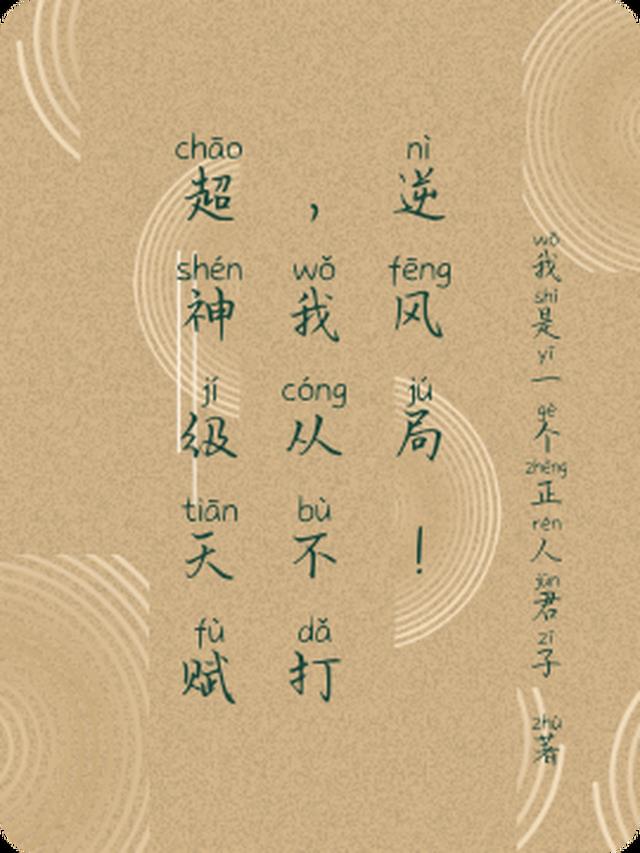 chāo shén jí tiān fù
超神级天赋
wǒ cóng bù dǎ
，我从不打
nì fēng jú
逆风局！
wǒ shì yī gè zhèng rén jūn zǐ zhù
我是一个正人君子 著